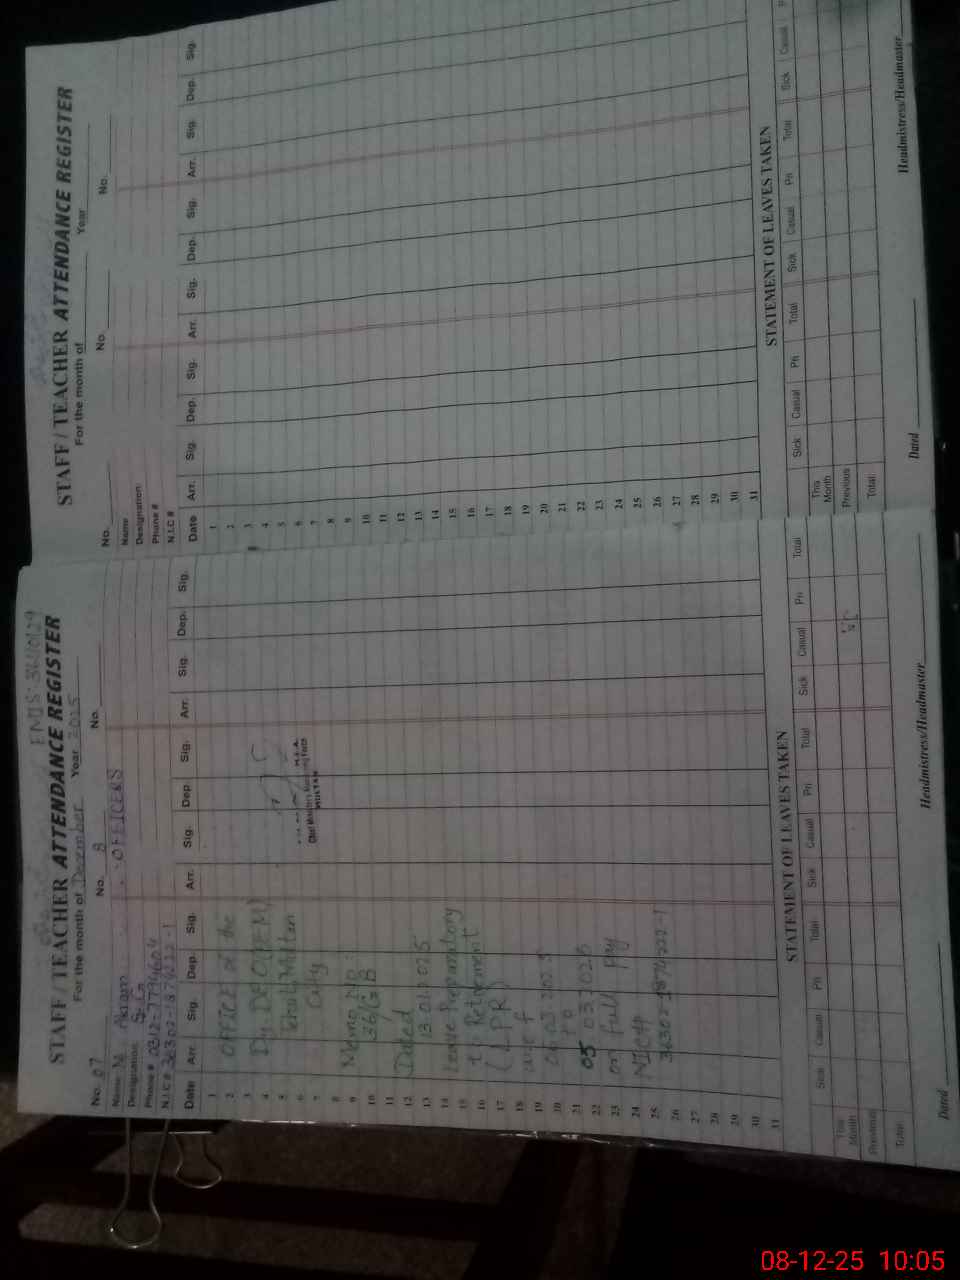 EMIS: 36110129
STAFF / TEACHER ATTENDANCE REGISTER
For the month of December Year 2025
No. 07 No. 8 No.
Name M. Akram OFFICERS
Designation:
Phone # 0312-7794604
N.I.C # 36302-1874222-1
Date Arr. Sig. Dep. Sig. Arr. Sig. Dep. Sig. Arr. Sig. Dep. Sig.
1
2
3
4
5
6
7
8
9
10
11
12
13
14
15
16
17
18
19
20
21
22
23
24
25
26
27
28
29
30
31
OFFICE of the
Dy. DEO (EEM)
Tehsil, Multan
City
MULTAN
Memo No.
36/G B
Dated
13.01.2025
Leave Preparatory
to Retirement
(LPR)
w e f
to
05 03 2026
on full pay
NIC #
36302-1874222-1
STATEMENT OF LEAVES TAKEN
Sick Casual Pri Total Sick Casual Pri Total Sick Casual Pri Total
This Month
Previous
Total
Dated Headmistress/Headmaster
STAFF / TEACHER ATTENDANCE REGISTER
For the month of Year
No. No. No.
Name
Designation:
Phone #
N.I.C #
Date Arr. Sig. Dep. Sig. Arr. Sig. Dep. Sig. Arr. Sig. Dep. Sig.
1
2
3
4
5
6
7
8
9
10
11
12
13
14
15
16
17
18
19
20
21
22
23
24
25
26
27
28
29
30
31
STATEMENT OF LEAVES TAKEN
Sick Casual Pri Total Sick Casual Pri Total Sick Casual P
This Month
Previous
Total
Dated Headmistress/Headmaster
08-12-25 10:05